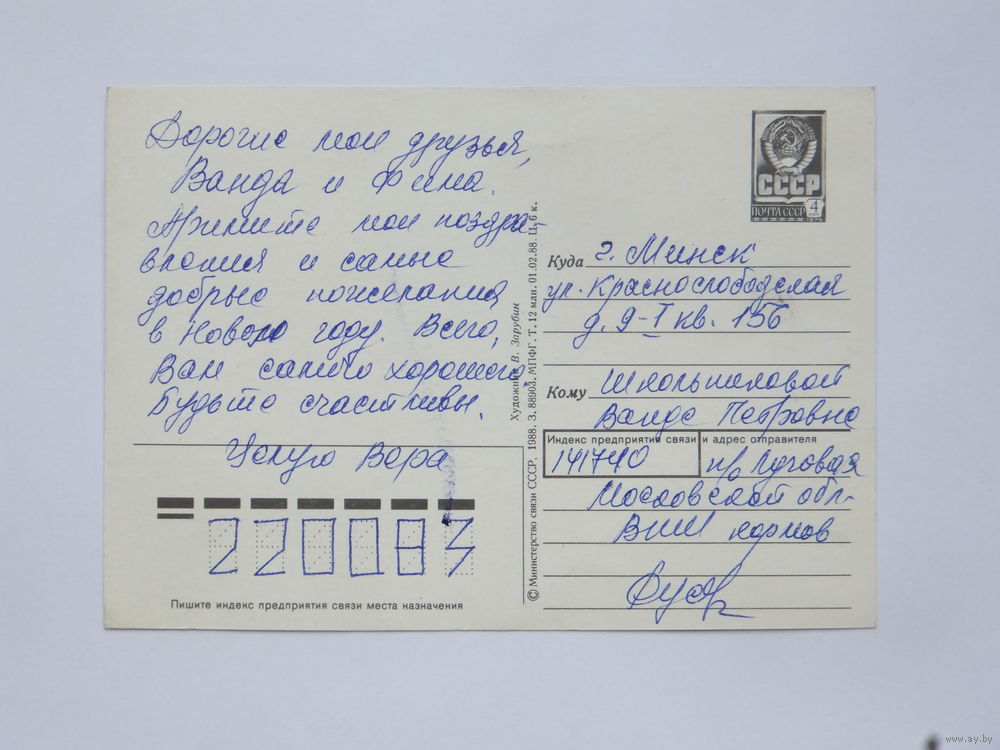 Дорогие мои друзья,
Ванда и Фима.
Примите мои поздра-
вления и самые
добрые пожелания
в Новом году. Всего,
Вам самого хорошего.
Будьте счастливы.
Целую Вера
220083
Пишите индекс предприятия связи места назначения
© Министерство связи СССР. 1988. З. 88903. МПФГ. Т. 12 млн. 01.02.88. Ц. 6 к.
Художник В. Зарубин
СССР
ПОЧТА СССР 4
1976
Куда г. Минск
ул. Краснослободская
д. 9-I кв. 156
Кому Школьниковой
Ванде Петровне
Индекс предприятия связи и адрес отправителя
141740 п/о Луговая
Московской обл.
ВНИИ кормов
www.ay.by